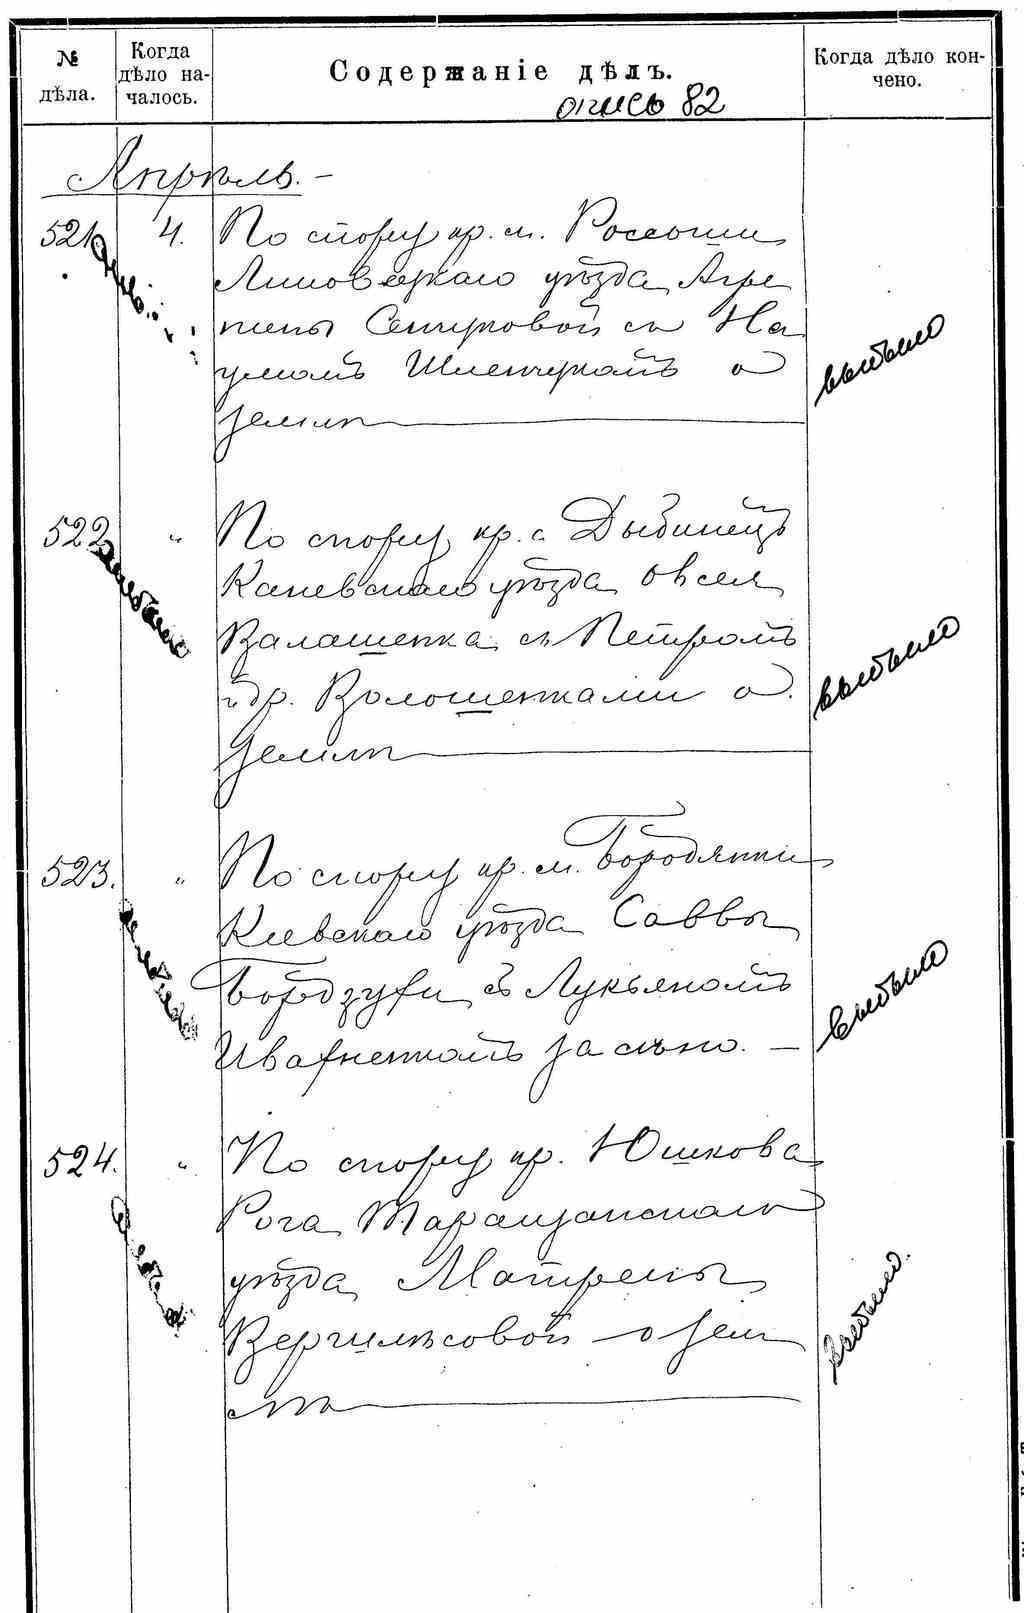 № дѣла.
Когда дѣло на-
чалось.
Содержаніе дѣлъ.
Когда дѣло кон-
чено.
опись 82
Апрѣль. -
521 4. По спору кр. м. Россоши
Липовецкаго уѣзда Агре
пены Сенчуковой съ На
умомъ Шпенчукомъ о
землѣ
выбыло
522 " По спору кр. с. Дыбинецъ
Каневскаго уѣзда Овсея
Валашенка съ Петромъ
и др. Волошенками о
землѣ
выбыло
выбыло
523. " По спору кр. м. Бородянки
Кіевскаго уѣзда Саввы
съ Лукьяномъ
Ивахненкомъ за сѣно. -
выбыло
524. " По спору кр. Юшкова
Рога Таращанскаго
уѣзда Матрены
о зем
лѣ
выбыло.